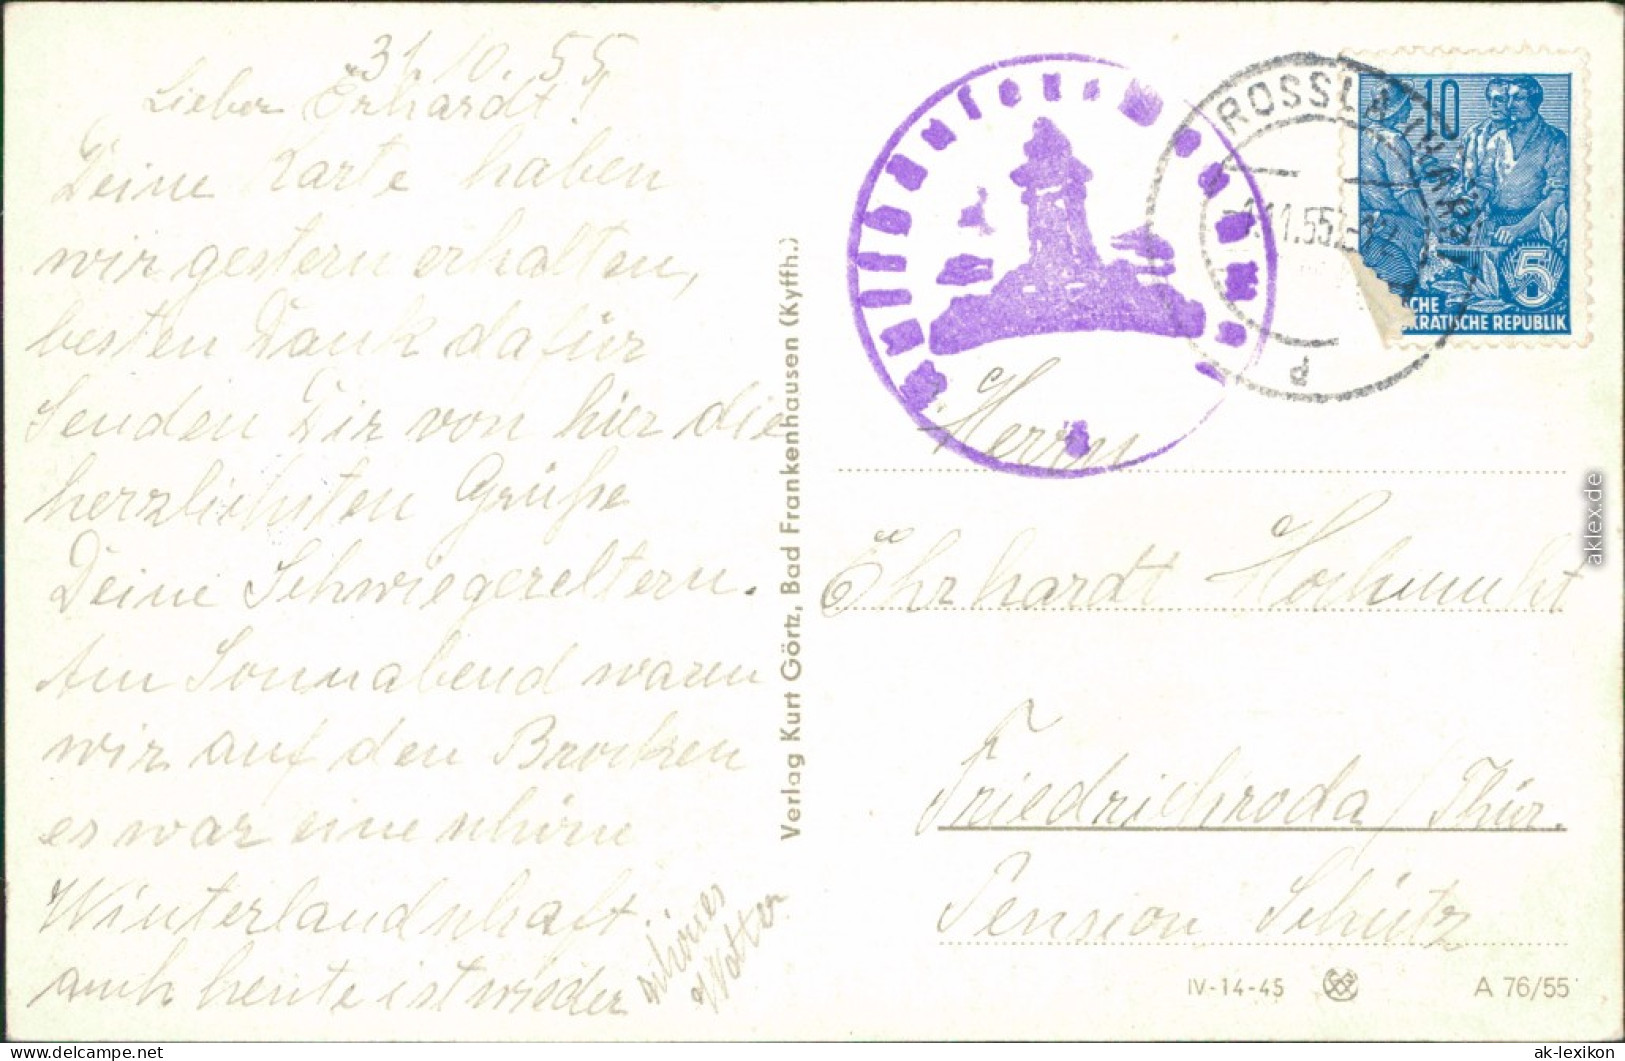 31.10.55
Lieber Erhardt!
Deine Karte haben
wir gestern erhalten,
besten Dank dafür
Senden Dir von hier die
herzlichsten Grüße
Deine Schwiegereltern.
Am Sonnabend waren
wir auf den Brocken
es war eine schöne
Winterlandschaft.
auch heute ist wieder
schönes
Wetter
Verlag Kurt Görtz, Bad Frankenhausen (Kyffh.)
ROSSLA
11.55
P
10
5
CHE
KRATISCHE REPUBLIK
Herrn
Ehrhardt
Friedrichroda/Thür.
Pension Schütz
IV-14-45
A 76/55
aklex.de
ak-lexikon